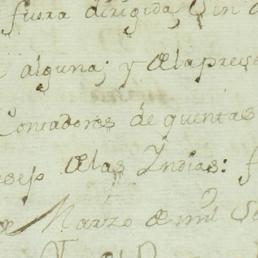 fuera dirigida, sin
alguna; y dela prese
Contadores de quentas
sejo delas Indias: f
de Marzo de mil Se